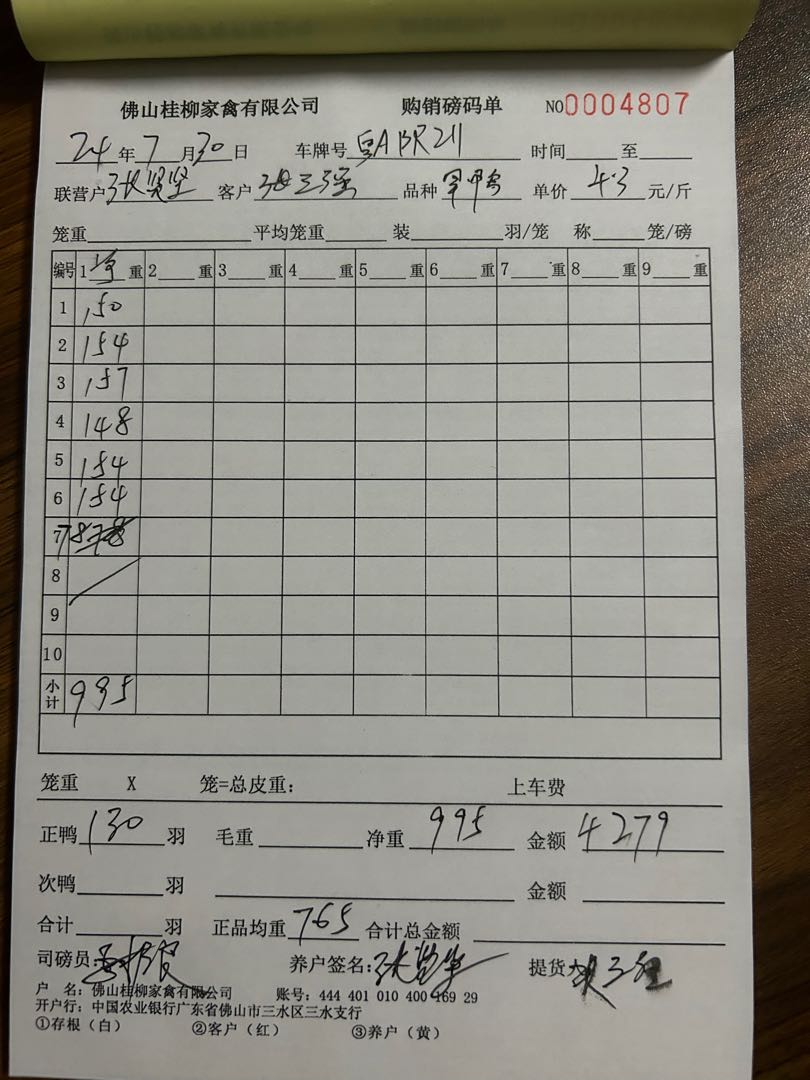 佛山桂柳家禽有限公司 购销磅码单 NO0004807
24年7月30日 车牌号粤ABR211 时间 至
联营户张贤坚 客户 品种 单价4.3元/斤
笼重 平均笼重 装 羽/笼 称 笼/磅
编号 1 重 2 重 3 重 4 重 5 重 6 重 7 重 8 重 9 重
1 150
2 154
3 157
4 148
5 154
6 154
7 78
8
9
10
小计 995
笼重 X 笼=总皮重： 上车费
正鸭130羽 毛重 净重995 金额4279
次鸭 羽 金额
合计 羽 正品均重765 合计总金额
司磅员: 养户签名: 提货
户 名：佛山桂柳家禽有限公司 账号：444 401 010 400 169 29
开户行：中国农业银行广东省佛山市三水区三水支行
①存根（白） ②客户（红） ③养户（黄）